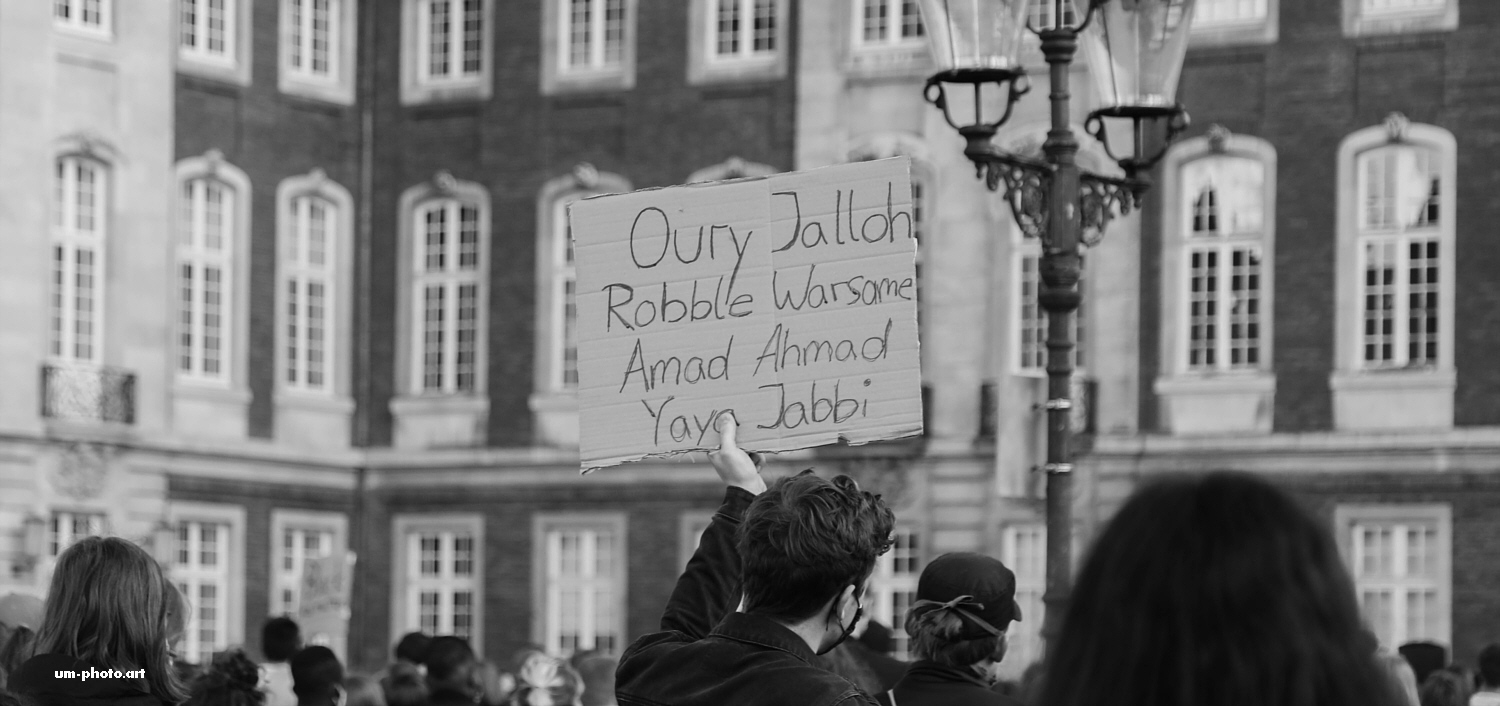 Oury Jalloh
Robble Warsame
Amad Ahmad
Yaya Jabbi
um-photo.art